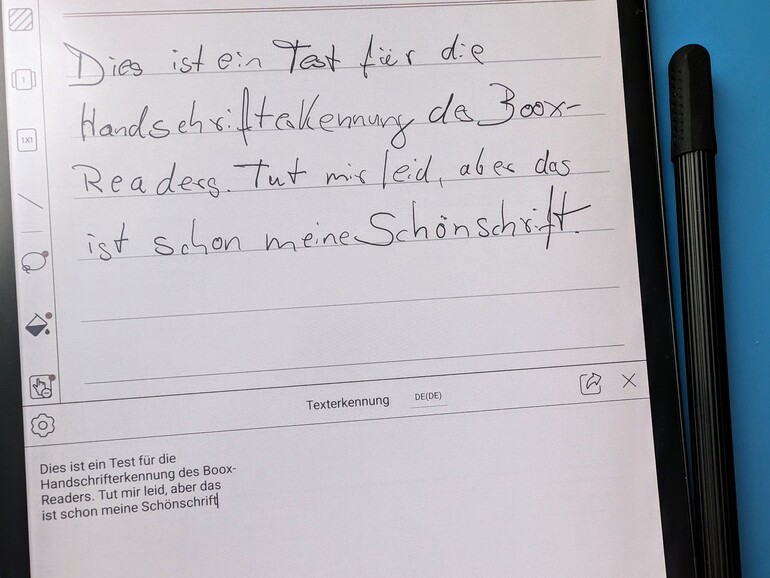 Dies ist ein Test für die
Handschrifterkennung des Boox-
Readers. Tut mir leid, aber das
ist schon meine Schönschrift.
1
1X1
Texterkennung DE(DE)
Dies ist ein Test für die
Handschrifterkennung des Boox-
Readers. Tut mir leid, aber das
ist schon meine Schönschrift